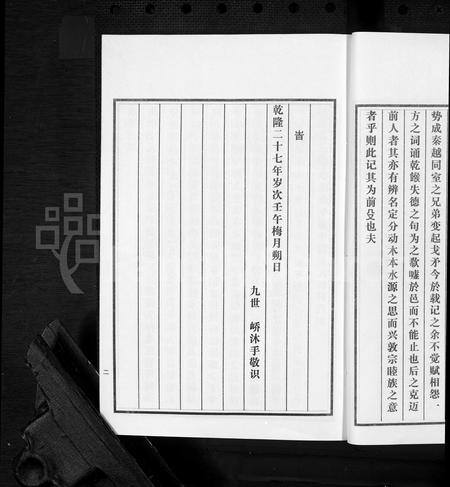 势成秦越同室之兄弟变起戈矛今於载记之余不觉赋相怨.
方之词诵乾餱失德之句为之欷嘘於邑而不能止也后之克迈
前人者其亦有辨名定分动木本水源之思而兴敦宗睦族之意
者乎则此记其为前殳也夫
旹
乾隆二十七年岁次壬午梅月朔日
九世 峤沐手敬识
二